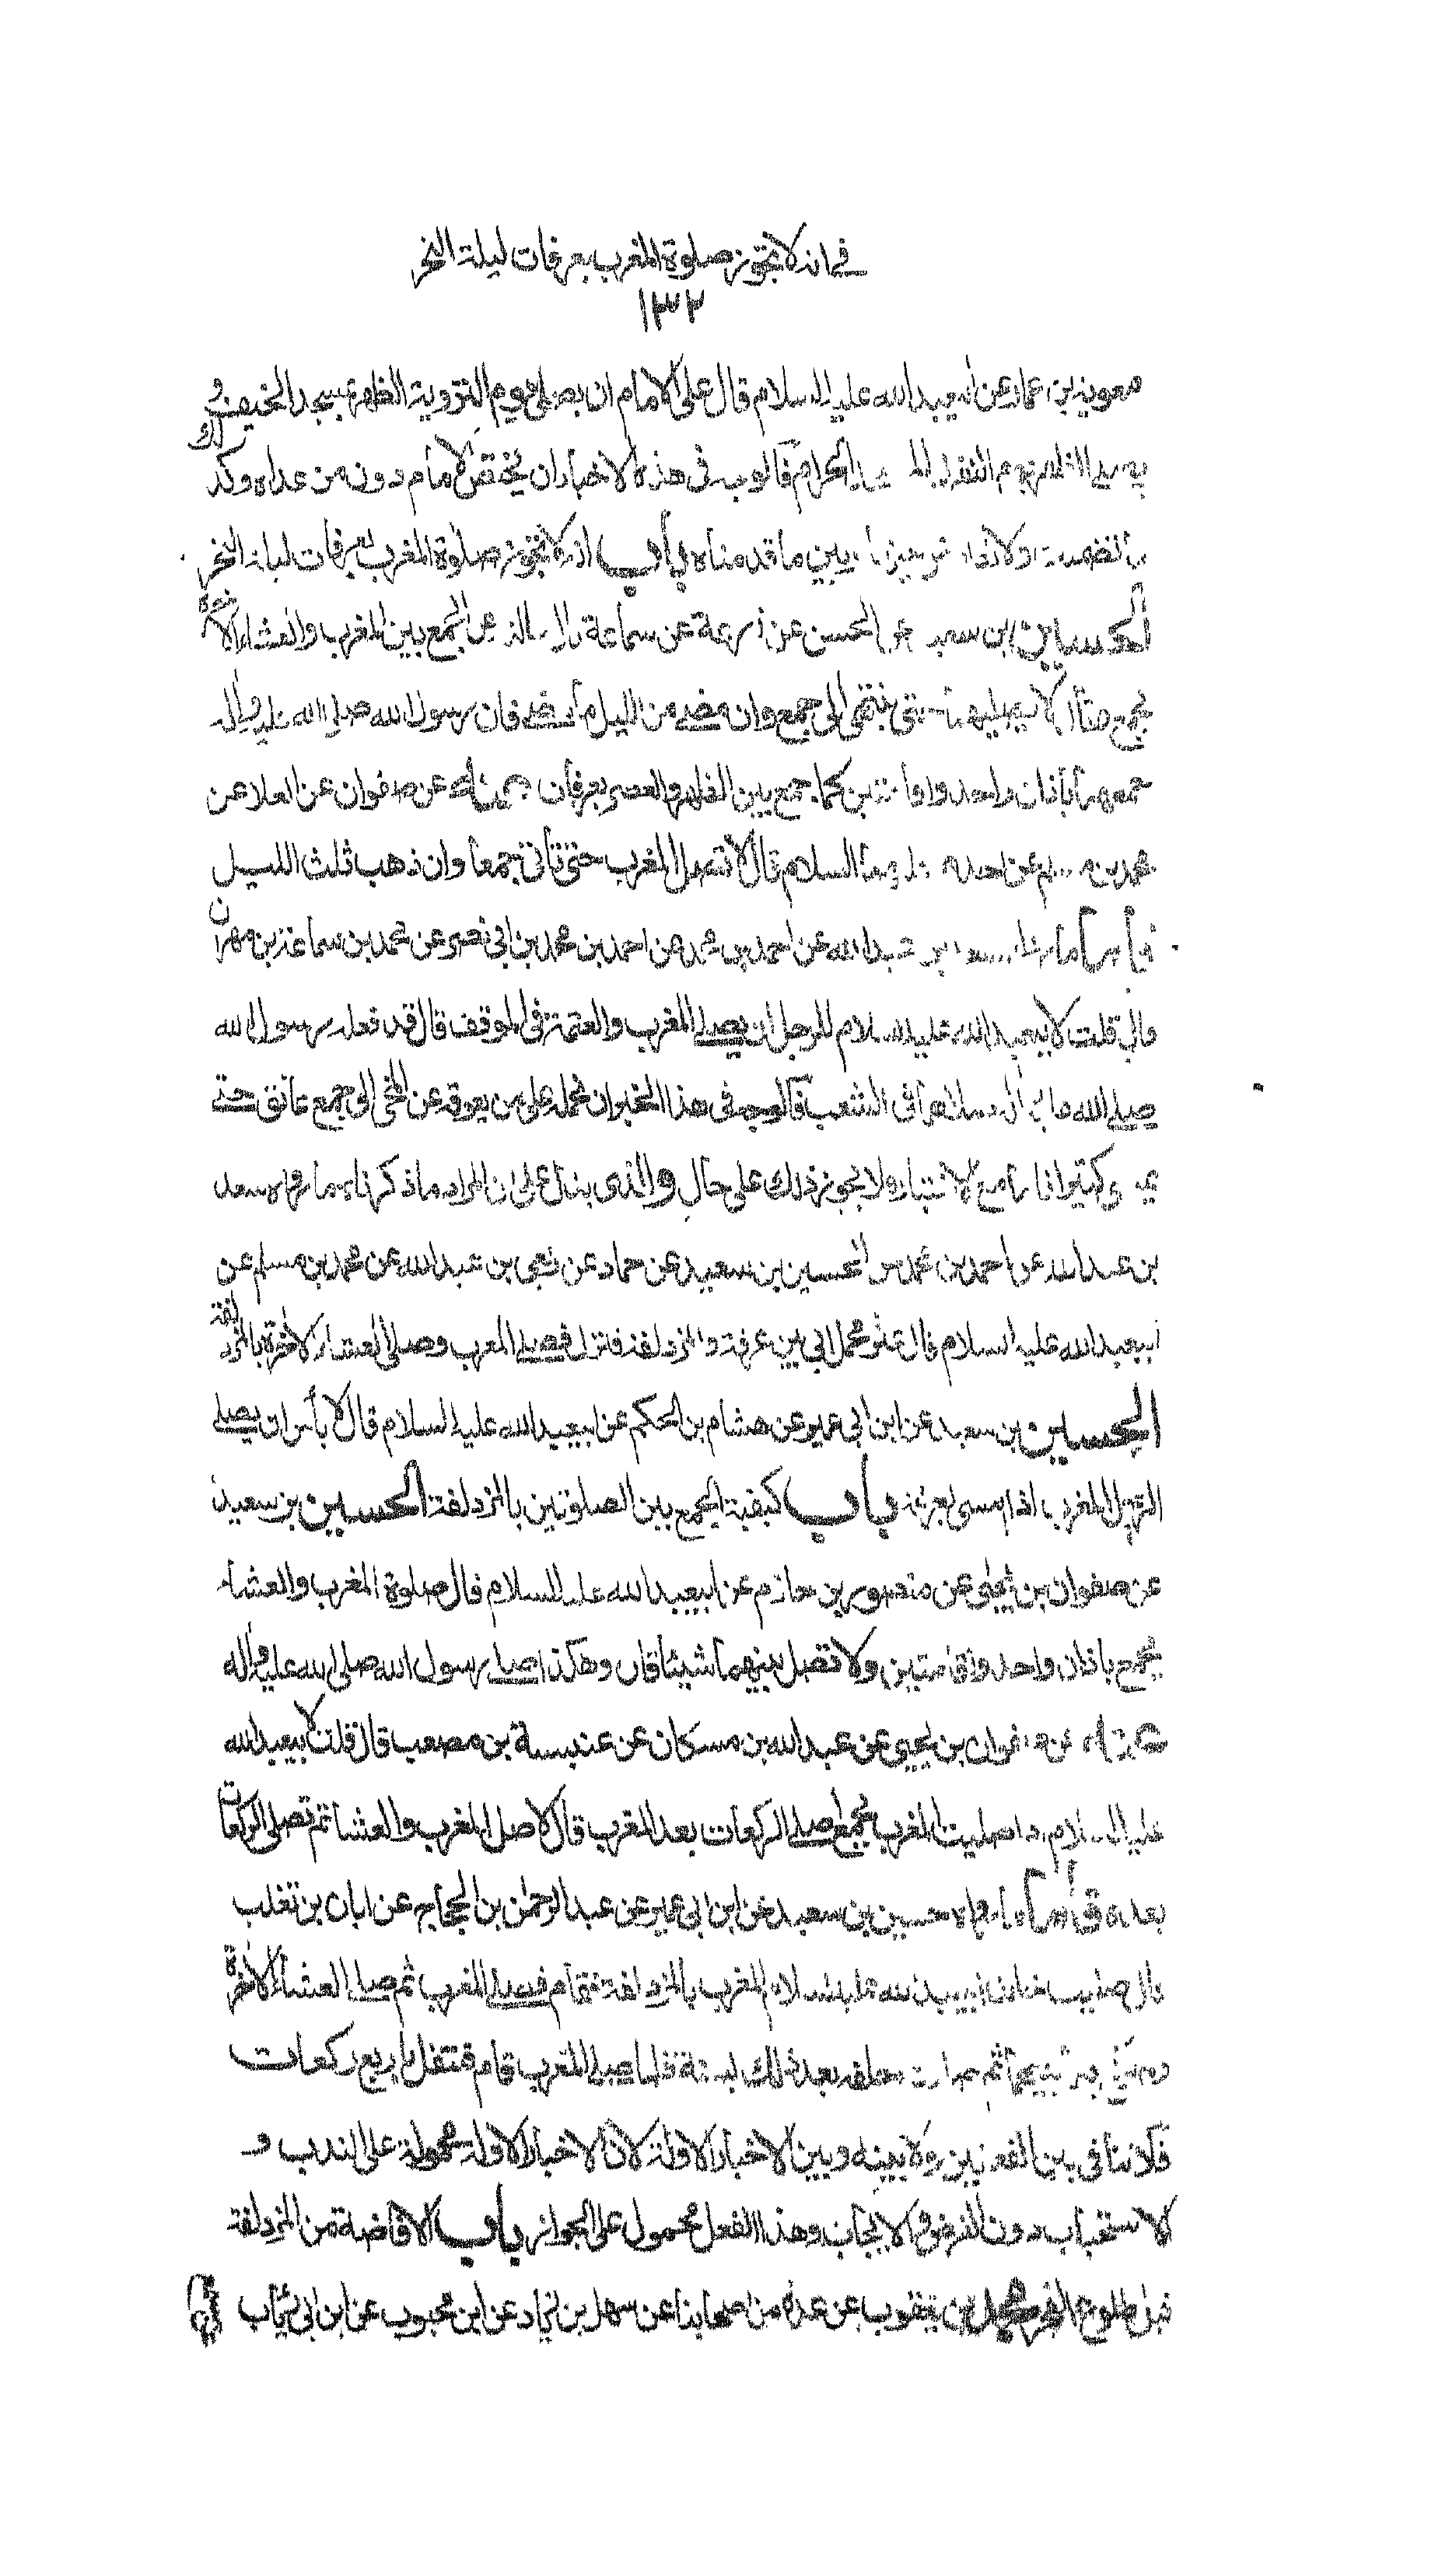 في انه لا تجوز صلوة المغرب بعرفات ليلة النحر
١٣٢
معوية بن عمار عن ابيعبد الله عليه السلام قال على الامام ان يصلى يوم التروية الظهر بمسجد الخيف و
يصلى الظهر يوم النفر المسجد الحرام فالوجه فى هذه الاخبار ان يختص الامام دون من عداه وكذلك
بين ما قدمناه باب انه لا تجوز صلوة المغرب بعرفات ليلة النحر
الحسين بن سعيد عن الحسن عن زرعة عن سماعة قال سالته عن الجمع بين المغرب والعشاء الاخرة
بجمع فقال لا تصليهما حتى تنتهى الى جمع وان مضى من الليل ما مضى فان رسول الله صلى الله عليه واله
جمعهما باذان واحد واقامتين كما جمع بين الظهر والعصر بعرفات عنه عن صفوان عن العلا عن
محمد بن مسلم عن احدهما عليهما السلام قال لا تصل المغرب حتى تأتى جمعا وان ذهب ثلث الليل
فاما ما رواه سعد بن عبد الله عن احمد بن محمد عن احمد بن محمد بن ابى نصر عن محمد بن سماعة بن مهران
قال قلت لابيعبد الله عليه السلام للرجل ان يصلى المغرب والعتمة فى الموقف قال قد فعله رسول الله
صلى الله عليه واله صلاهما فى الشعب فالوجه فى هذا الخبر ان نحمله على من يعوقه عن المجئ الى جمع عائق حتى
يمضى كثير فاما مع الاختيار ولا يجوز ذلك على حال والذى يدل على ان المراد ما ذكرناه ما رواه سعد
بن عبد الله عن احمد بن محمد عن الحسين بن سعيد عن حماد عن ربعى بن عبد الله عن محمد بن مسلم عن
ابيعبد الله عليه السلام قال عثر محمل ابى بين عرفة والمزدلفة فنزل فصلى المغرب وصلى العشاء الاخرة بالمزدلفة
الحسين بن سعيد عن ابن ابى عمير عن هشام بن الحكم عن ابيعبد الله عليه السلام قال لا بأس ان يصلى
الرجل المغرب اذا امسى بعرفة باب كيفية الجمع بين الصلوتين بالمزدلفة الحسين بن سعيد
عن صفوان بن يحيى عن منصور بن حازم عن ابيعبد الله عليه السلام قال صلوة المغرب والعشاء
بجمع باذان واحد واقامتين ولا تصل بينهما شيئا قال وهكذا صلى رسول الله صلى الله عليه واله
عنه عن صفوان بن يحيى عن عبد الله بن مسكان عن عنبسة بن مصعب قال قلت لابيعبد الله
عليه السلام اذا صليت المغرب بجمع اصلى الركعات بعد المغرب قال لا صل المغرب والعشاء ثم تصلى الركعات
بعده فاما ما رواه حسين بن سعيد عن ابن ابى عمير عن عبد الرحمن بن الحجاج عن ابان بن تغلب
قال صليت خلف ابيعبد الله عليه السلام المغرب بالمزدلفة فقام فصلى المغرب ثم صلى العشاء الاخرة
ولم يركع بينهما ثم صليت خلفه بعد ذلك بسنة فلما صلى المغرب قام فتنفل باربع ركعات
فلا تنافى بين الخبر وبين الاخبار الاولة لان الاخبار الاولة محمولة على الندب و
الاستحباب دون الفرض والايجاب وهذا الفعل محمول على الجواز باب الافاضة من المزدلفة
قبل طلوع الفجر محمد بن يعقوب عن عدة من اصحابنا عن سهل بن زياد عن ابن محبوب عن ابن ابى رئاب